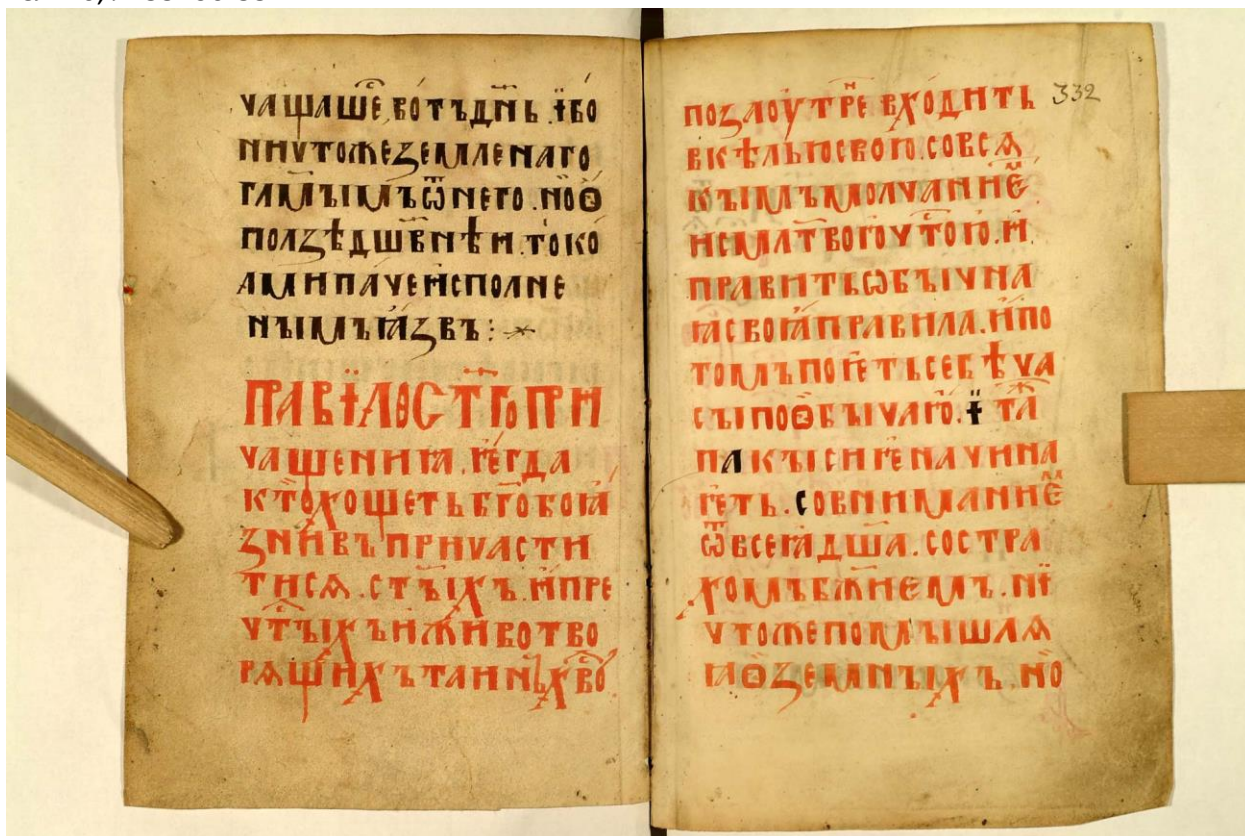 чашаше́ вотъдн҃ь . ї҆бо
ничтожеземленаго
гл҃мымъѿнего . но҆ѳ
ползѣдш҃внѣи . токо
амипа́чеи҆сполне
нымъꙗ҆звъ :
правїлостг҃опри
чащениꙗ . ѥ҆гда
кто́хощетьбг҃обоꙗ
знивъпричасти
тисѧ . ст҃ы́хъ . и҆пре
чт҃ыхъиживотво
рѧщихътаинъхво́
332
позаоутреⷩ҇входить
вкѣльюсвою . совсѧ
кы́мъмолчание́ⷨ
исмл҃твоючтою . и҆
правитьѡбычна
ꙗсвоꙗ҆правила . и҆по
томъпоѥ҆тьсебѣча
сыпоѻ҆бычаю . ї та́ⷤ
пакысиѥначина
ѥть . совнимание́ⷨ
ѿвсеꙗдш҃а . состра
хомъбж҃иемъ . нї
чтожепомышлѧ
ꙗѻ҆земныхъ . но҆